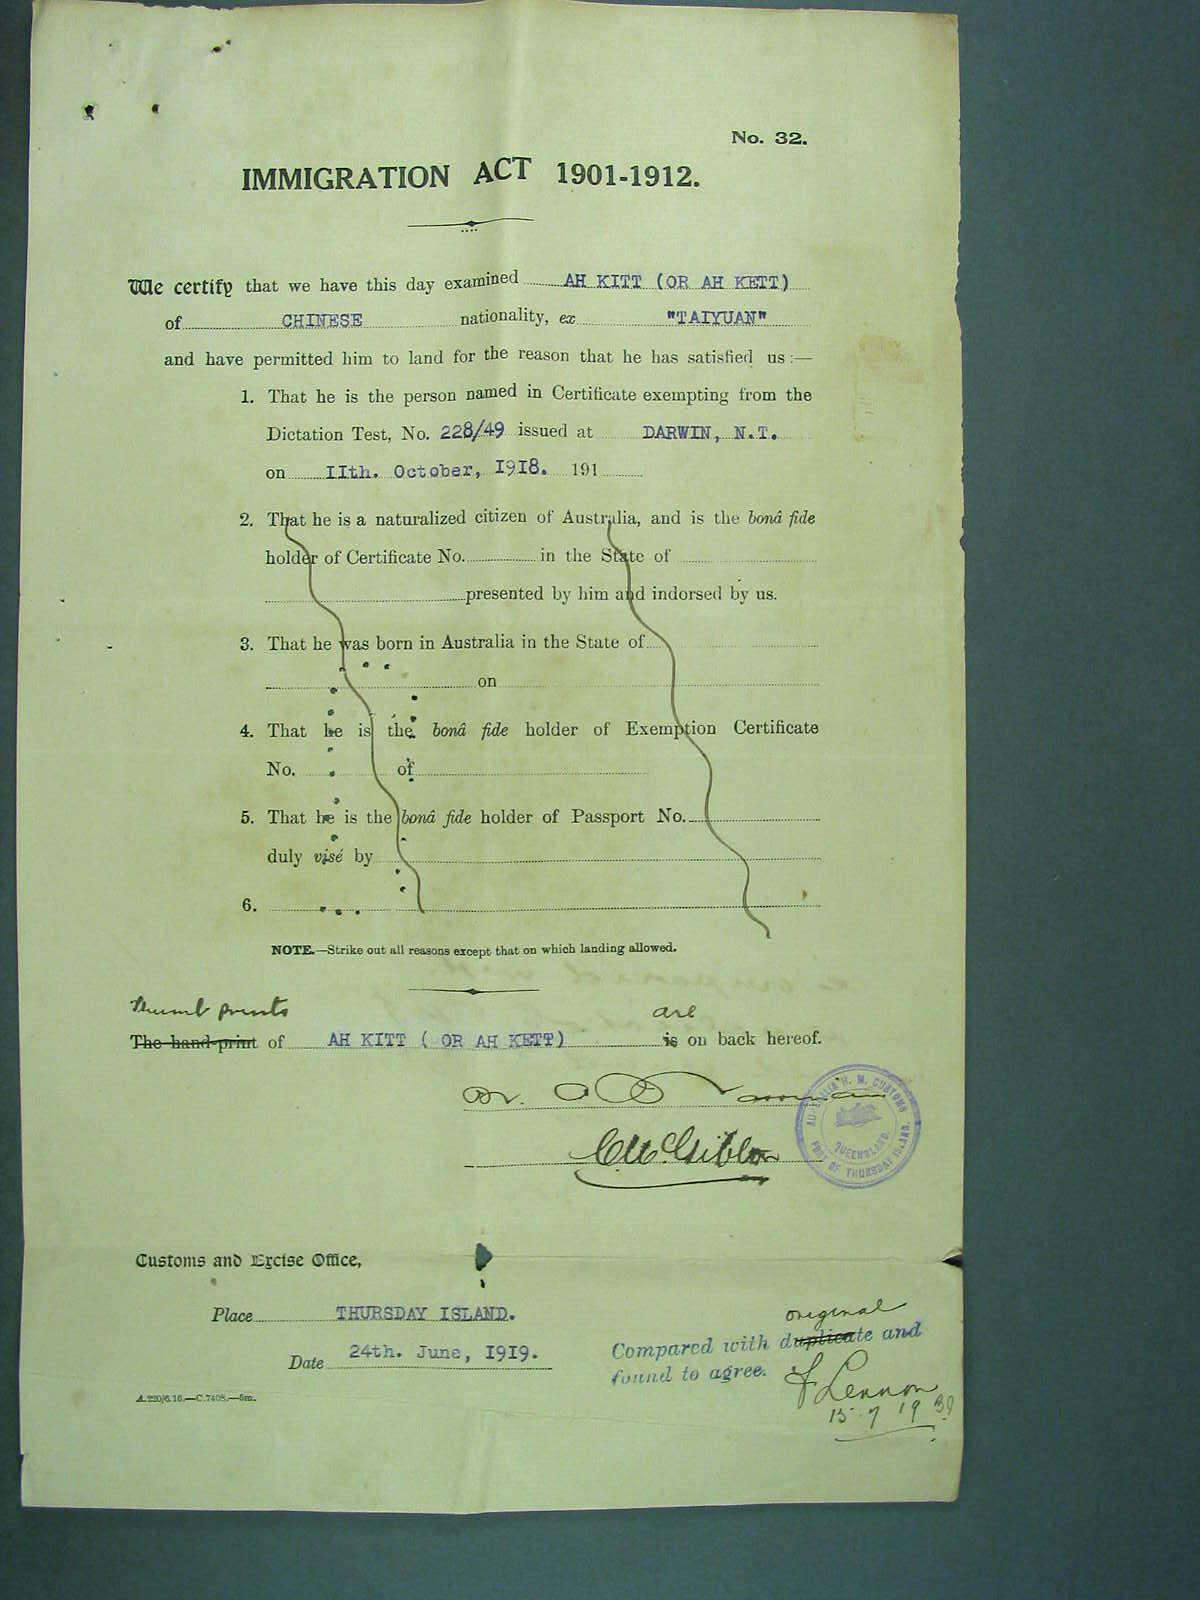 No. 32.
IMMIGRATION ACT 1901-1912.
We certify that we have this day examined AH KITT (OR AH KETT)
of CHINESE nationality, ex "TAIYUAN"
and have permitted him to land for the reason that he has satisfied us :—
1. That he is the person named in Certificate exempting from the
Dictation Test, No. 228/49 issued at DARWIN, N.T.
on IIth. October, I9I8. 191
2. That he is a naturalized citizen of Australia, and is the bonâ fide
holder of Certificate No. in the State of
presented by him and indorsed by us.
3. That he was born in Australia in the State of
on
4. That he is the bonâ fide holder of Exemption Certificate
No. of
5. That he is the bonâ fide holder of Passport No.
duly visé by
6.
NOTE.—Strike out all reasons except that on which landing allowed.
Thumb prints are
The hand-print of AH KITT ( OR AH KETT) is on back hereof.
AUSTRALIA H. M. CUSTOMS
QUEENSLAND.
PORT OF THURSDAY ISLAND.
Customs and Excise Office,
Place THURSDAY ISLAND.
Date 24th. June, I9I9.
original
Compared with duplicate and
found to agree.
F Lennon
15.7 19
A.220/6.16.—C.7408.—5m.